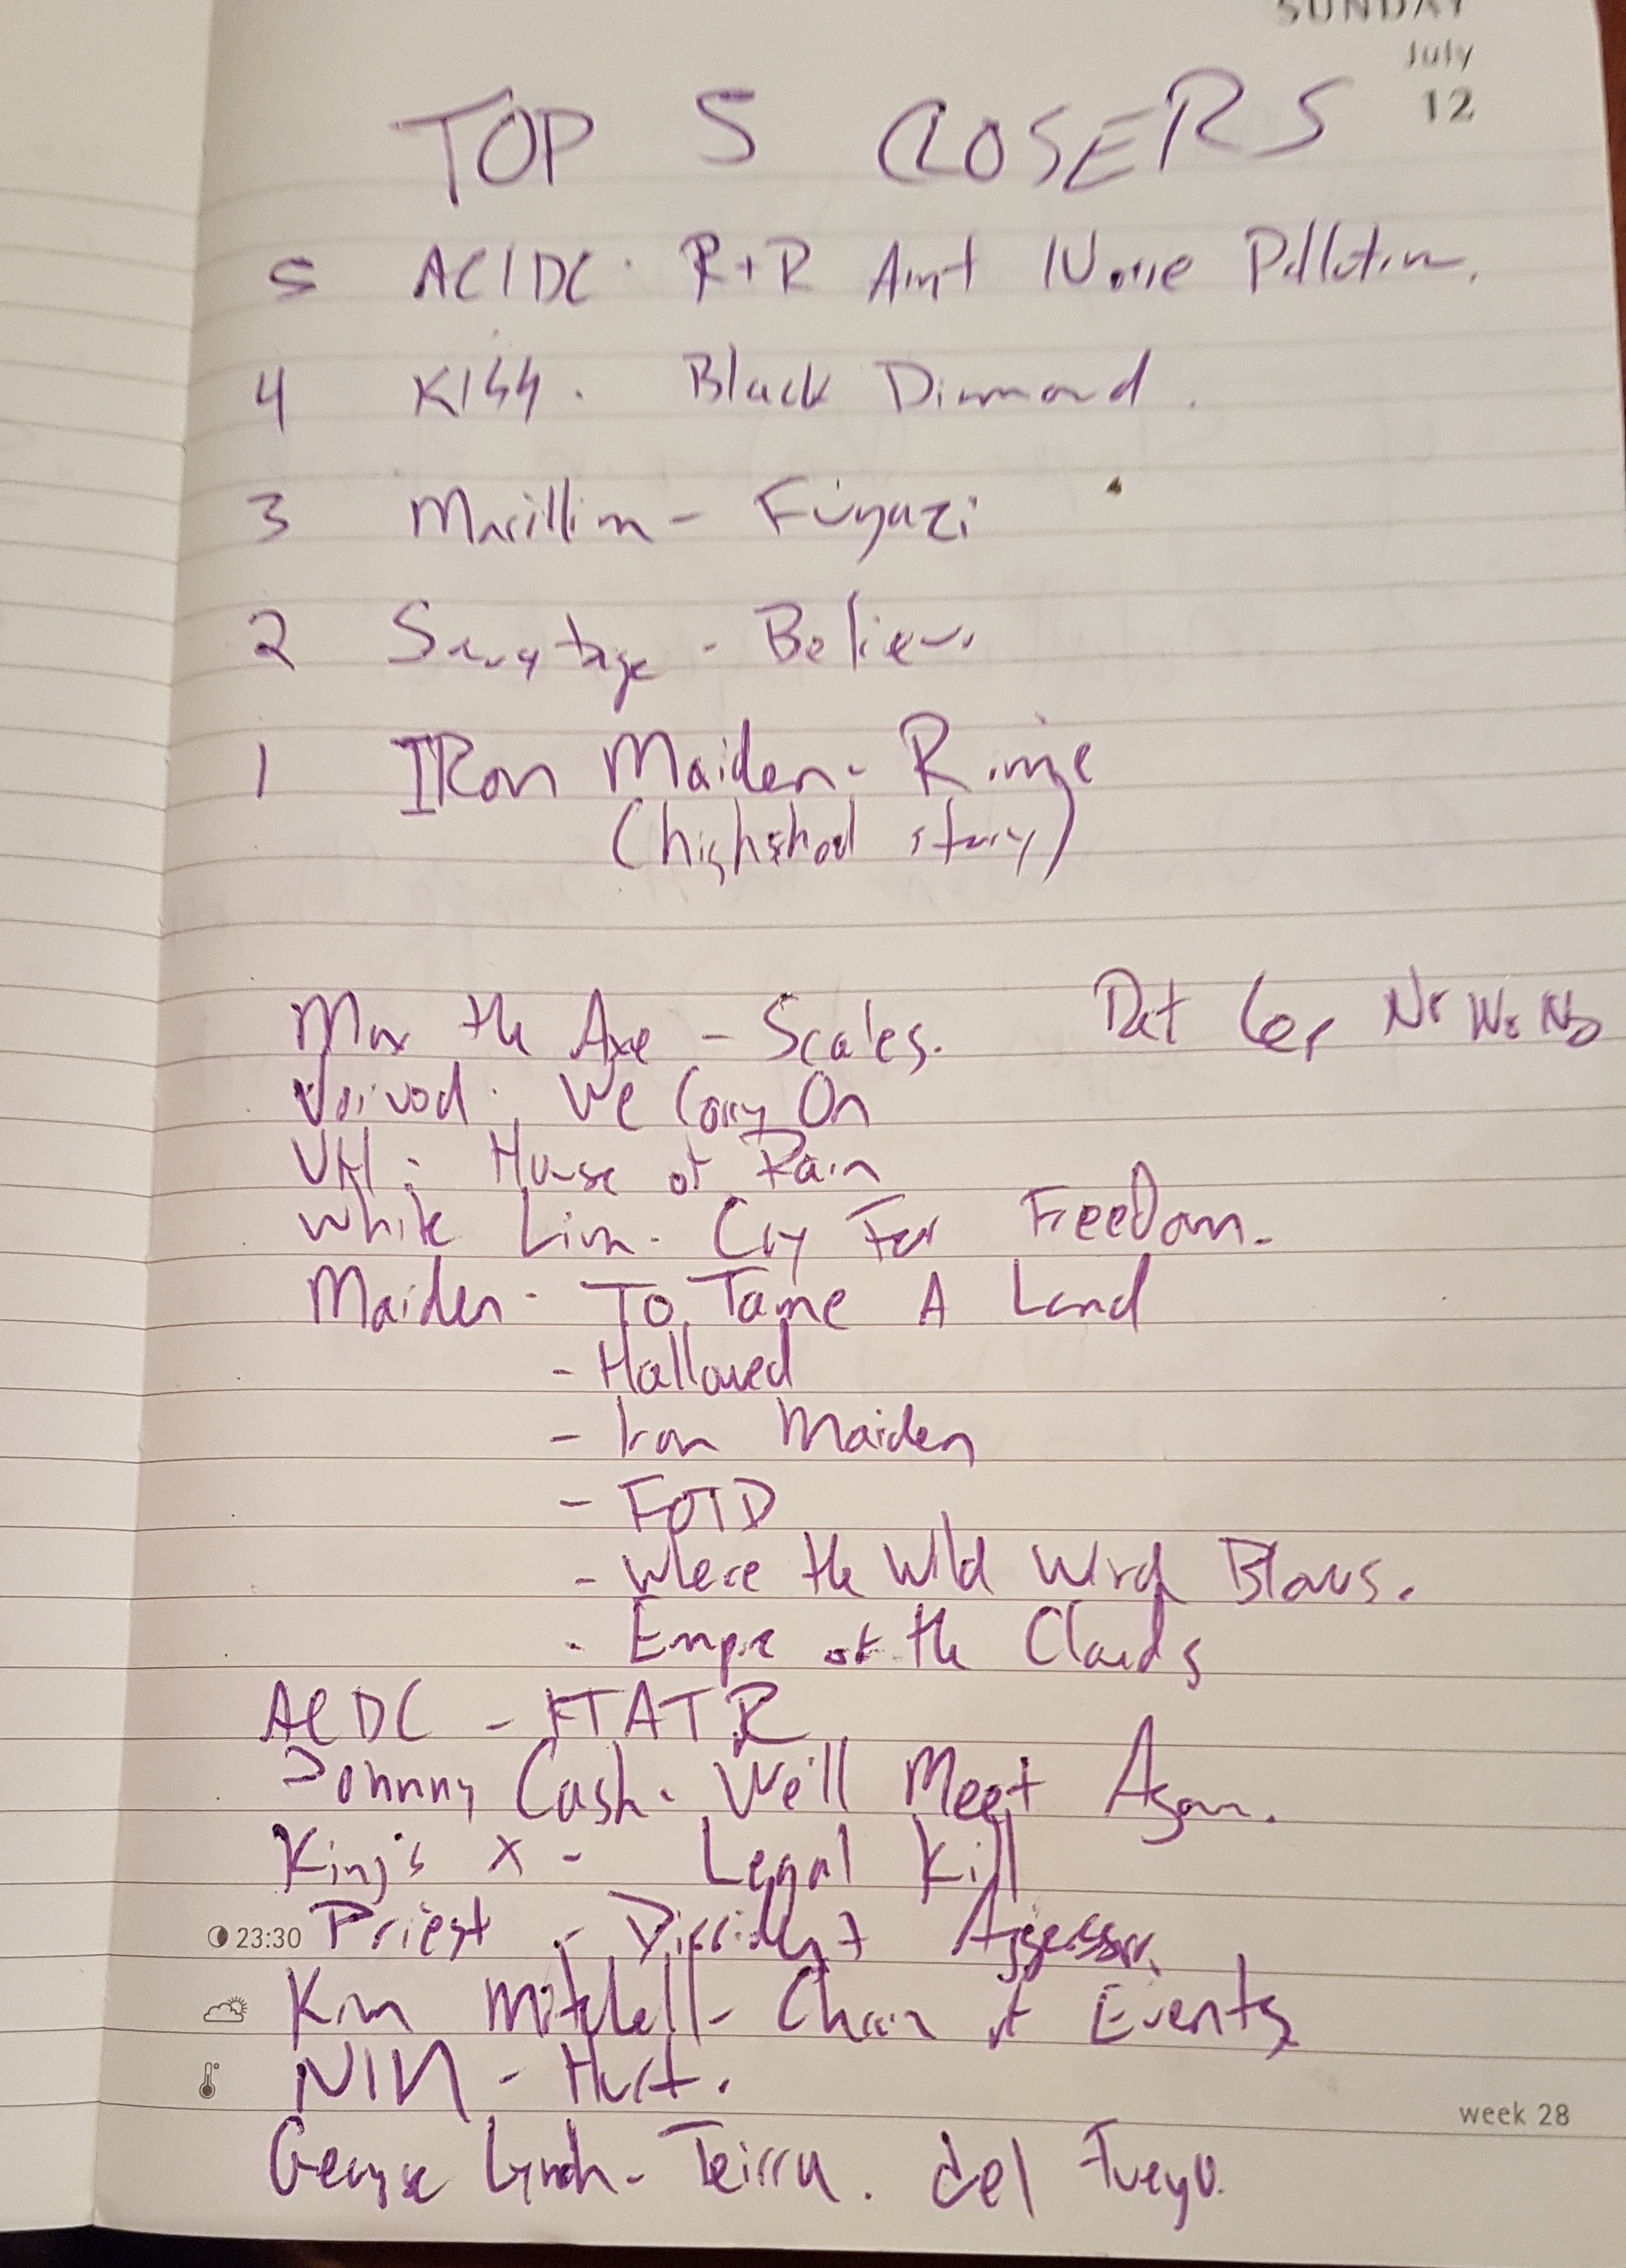 SUNDAY
July
12
TOP 5 CLOSERS
5 AC/DC · R+R Aint Noise Pollution.
4 KISS. Black Diamond.
3 Marillion - Fugazi
2 Savatage - Believe
1 IRon Maiden - Rime
(highschool story)
Max the Axe - Scales.
Voivod · We Carry On
VH: House of Pain
White Lion - Cry For FreeDom.
Maiden - To Tame A Land
- Hallowed
- Iron Maiden
- FOTD
- Where the Wild Wind Blows.
- Empire of the Clouds
ACDC - FTATR
Johnny Cash. We'll Meet Again.
King's X - Legal Kill
23:30 Priest - Dissident Aggressor.
Kim Mitchell - Chain of Events
NIN - Hurt.
week 28
George Lynch - Teirra. del Fuego.